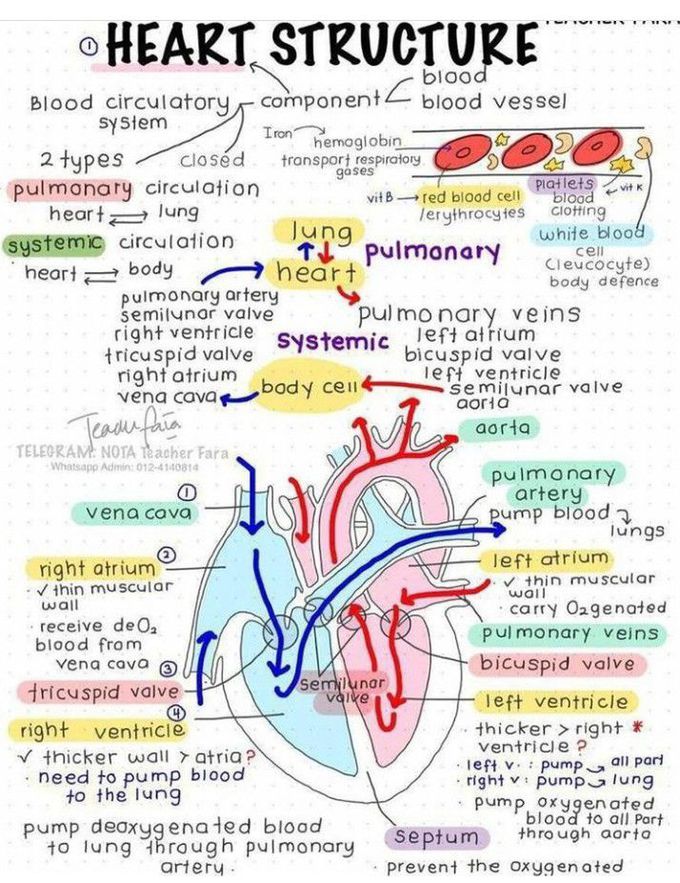 ① HEART STRUCTURE
Blood circulatory system
component
blood
blood vessel
2 types
closed
pulmonary circulation
heart ⇌ lung
systemic circulation
heart ⇌ body
Iron
hemoglobin
transport respiratory
gases
vit B → red blood cell
/erythrocytes
platlets
blood
clotting
vit K
white blood
cell
(leucocyte)
body defence
lung
heart
pulmonary
pulmonary artery
semilunar valve
right ventricle
tricuspid valve
right atrium
vena cava
systemic
body cell
pulmonary veins
left atrium
bicuspid valve
left ventricle
semilunar valve
aorta
Teacher Fara
TELEGRAM: NOTA Teacher Fara
Whatsapp Admin: 012-4140814
aorta
①
vena cava
pulmonary
artery
pump blood
lungs
②
right atrium
· ✓ thin muscular
wall
· receive deO₂
blood from
vena cava
③
tricuspid valve
④
right ventricle
✓ thicker wall > atria?
· need to pump blood
to the lung
pump deoxygenated blood
to lung through pulmonary
artery.
semilunar
valve
left atrium
· ✓ thin muscular
wall
· carry O₂genated
pulmonary veins
bicuspid valve
left ventricle
· thicker > right *
ventricle ?
· left v. : pump all part
· right v : pump lung
· pump oxygenated
blood to all Part
through aorta
septum
· prevent the oxygenated